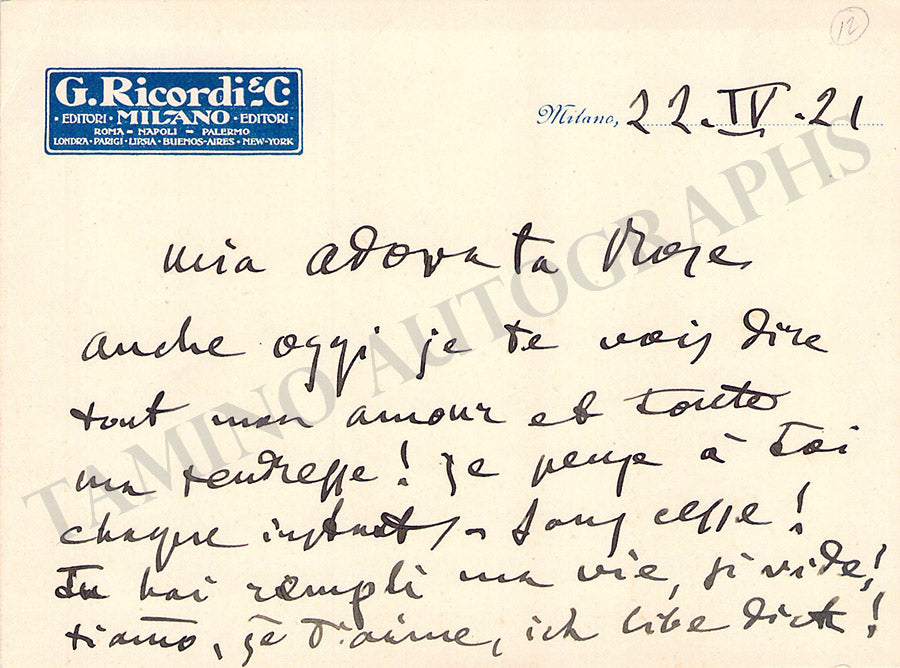 12
G. Ricordi & C.
· EDITORI · MILANO · EDITORI ·
ROMA - NAPOLI - PALERMO
LONDRA · PARIGI · LIPSIA · BUENOS-AIRES · NEW-YORK
Milano, 22.IV.21
TAMINO AUTOGRAPHS
mia adorata Rose
anche oggi je te vais dire
tout mon amour et toute
ma tendresse! Je pense à toi
chaque instant - sans cesse!
Tu hai rempli ma vie, si vide!
tiamo, je t'aime, ich libe dich!